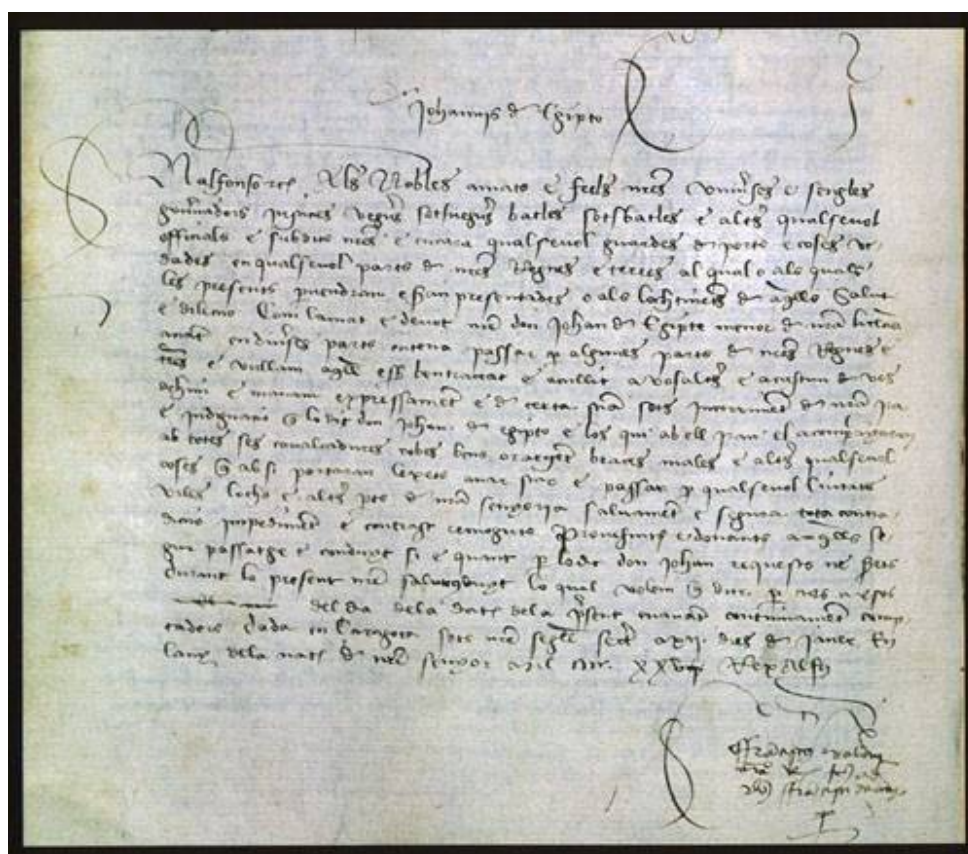 Johannis de Egipto
Nalfonso etc. Als Nobles amats e feels nres universes e sengles
governadors justicies veguers sotsveguers batles sotsbatles e altres qualsevol
officials e subdits nres e encara qualsevol guardes de ports e coses ve-
dades en qualsevol parts de nres Regnes e terres al qual o als quals
les presents pervendran e seran presentades o als lochtinents de aquells Salut
e dileccio Com lamat e devot nre don Johan de Egipte menor de nra licencia
anant en diverses parts entena passar per algunes parts de nres Regnes e
terres e vullam aquell esser ben tractat e acullit a vosaltres e cascun de vos
dehim e manam expressament e de certa sciencia sots incorriment de nra ira
e indignacio que lo dit don Johan de Egipto e los qui ab ell iran el acompanyaran
ab totes ses cavalcadures robes bens or argent bolges males e altres qualsevol
coses que ab si portaran lexets anar star e passar per qualsevol Ciutats
viles lochs e altres parts de nra senyoria salvament e segura tota contra-
diccio impediment e contrast remoguts Provehints e donants a aquells se-
gur passatge e conduyt si e quant per lo dit don Johan requests ne sereu
durant lo present nre salvconduyt lo qual volem que dur per tres mesos
del dia dela data dela present enavant continuament comp-
tadors Dada en Caragoça sots nre segell secret a xii dies de Janer En
lany dela nat de nre senyor Mil CCCC XXV Rex Alfo
Franciscus